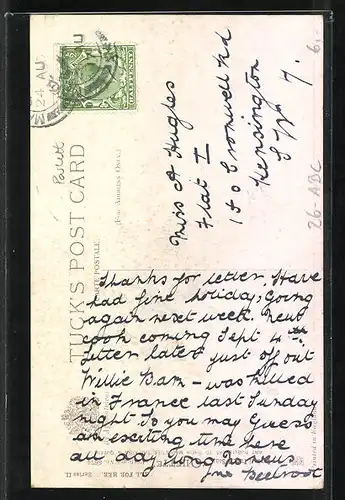 Thanks for letter. Have
had fine holiday, going
again next week. New
cook coming Sept 4th
Letter later just off out
Willie Bam – was killed
in France last Sunday
night So you may guess
an exciting time here
all day long no news
Beetroot
Miss A Hughes
Flat I
Cromwell Rd
Kensington
S.W. 7.
TUCK'S POST CARD
CARTE POSTALE
(For Address Only)
HALFPENNY
24 AU
26-ABC
6,-
Series II.
Printed in